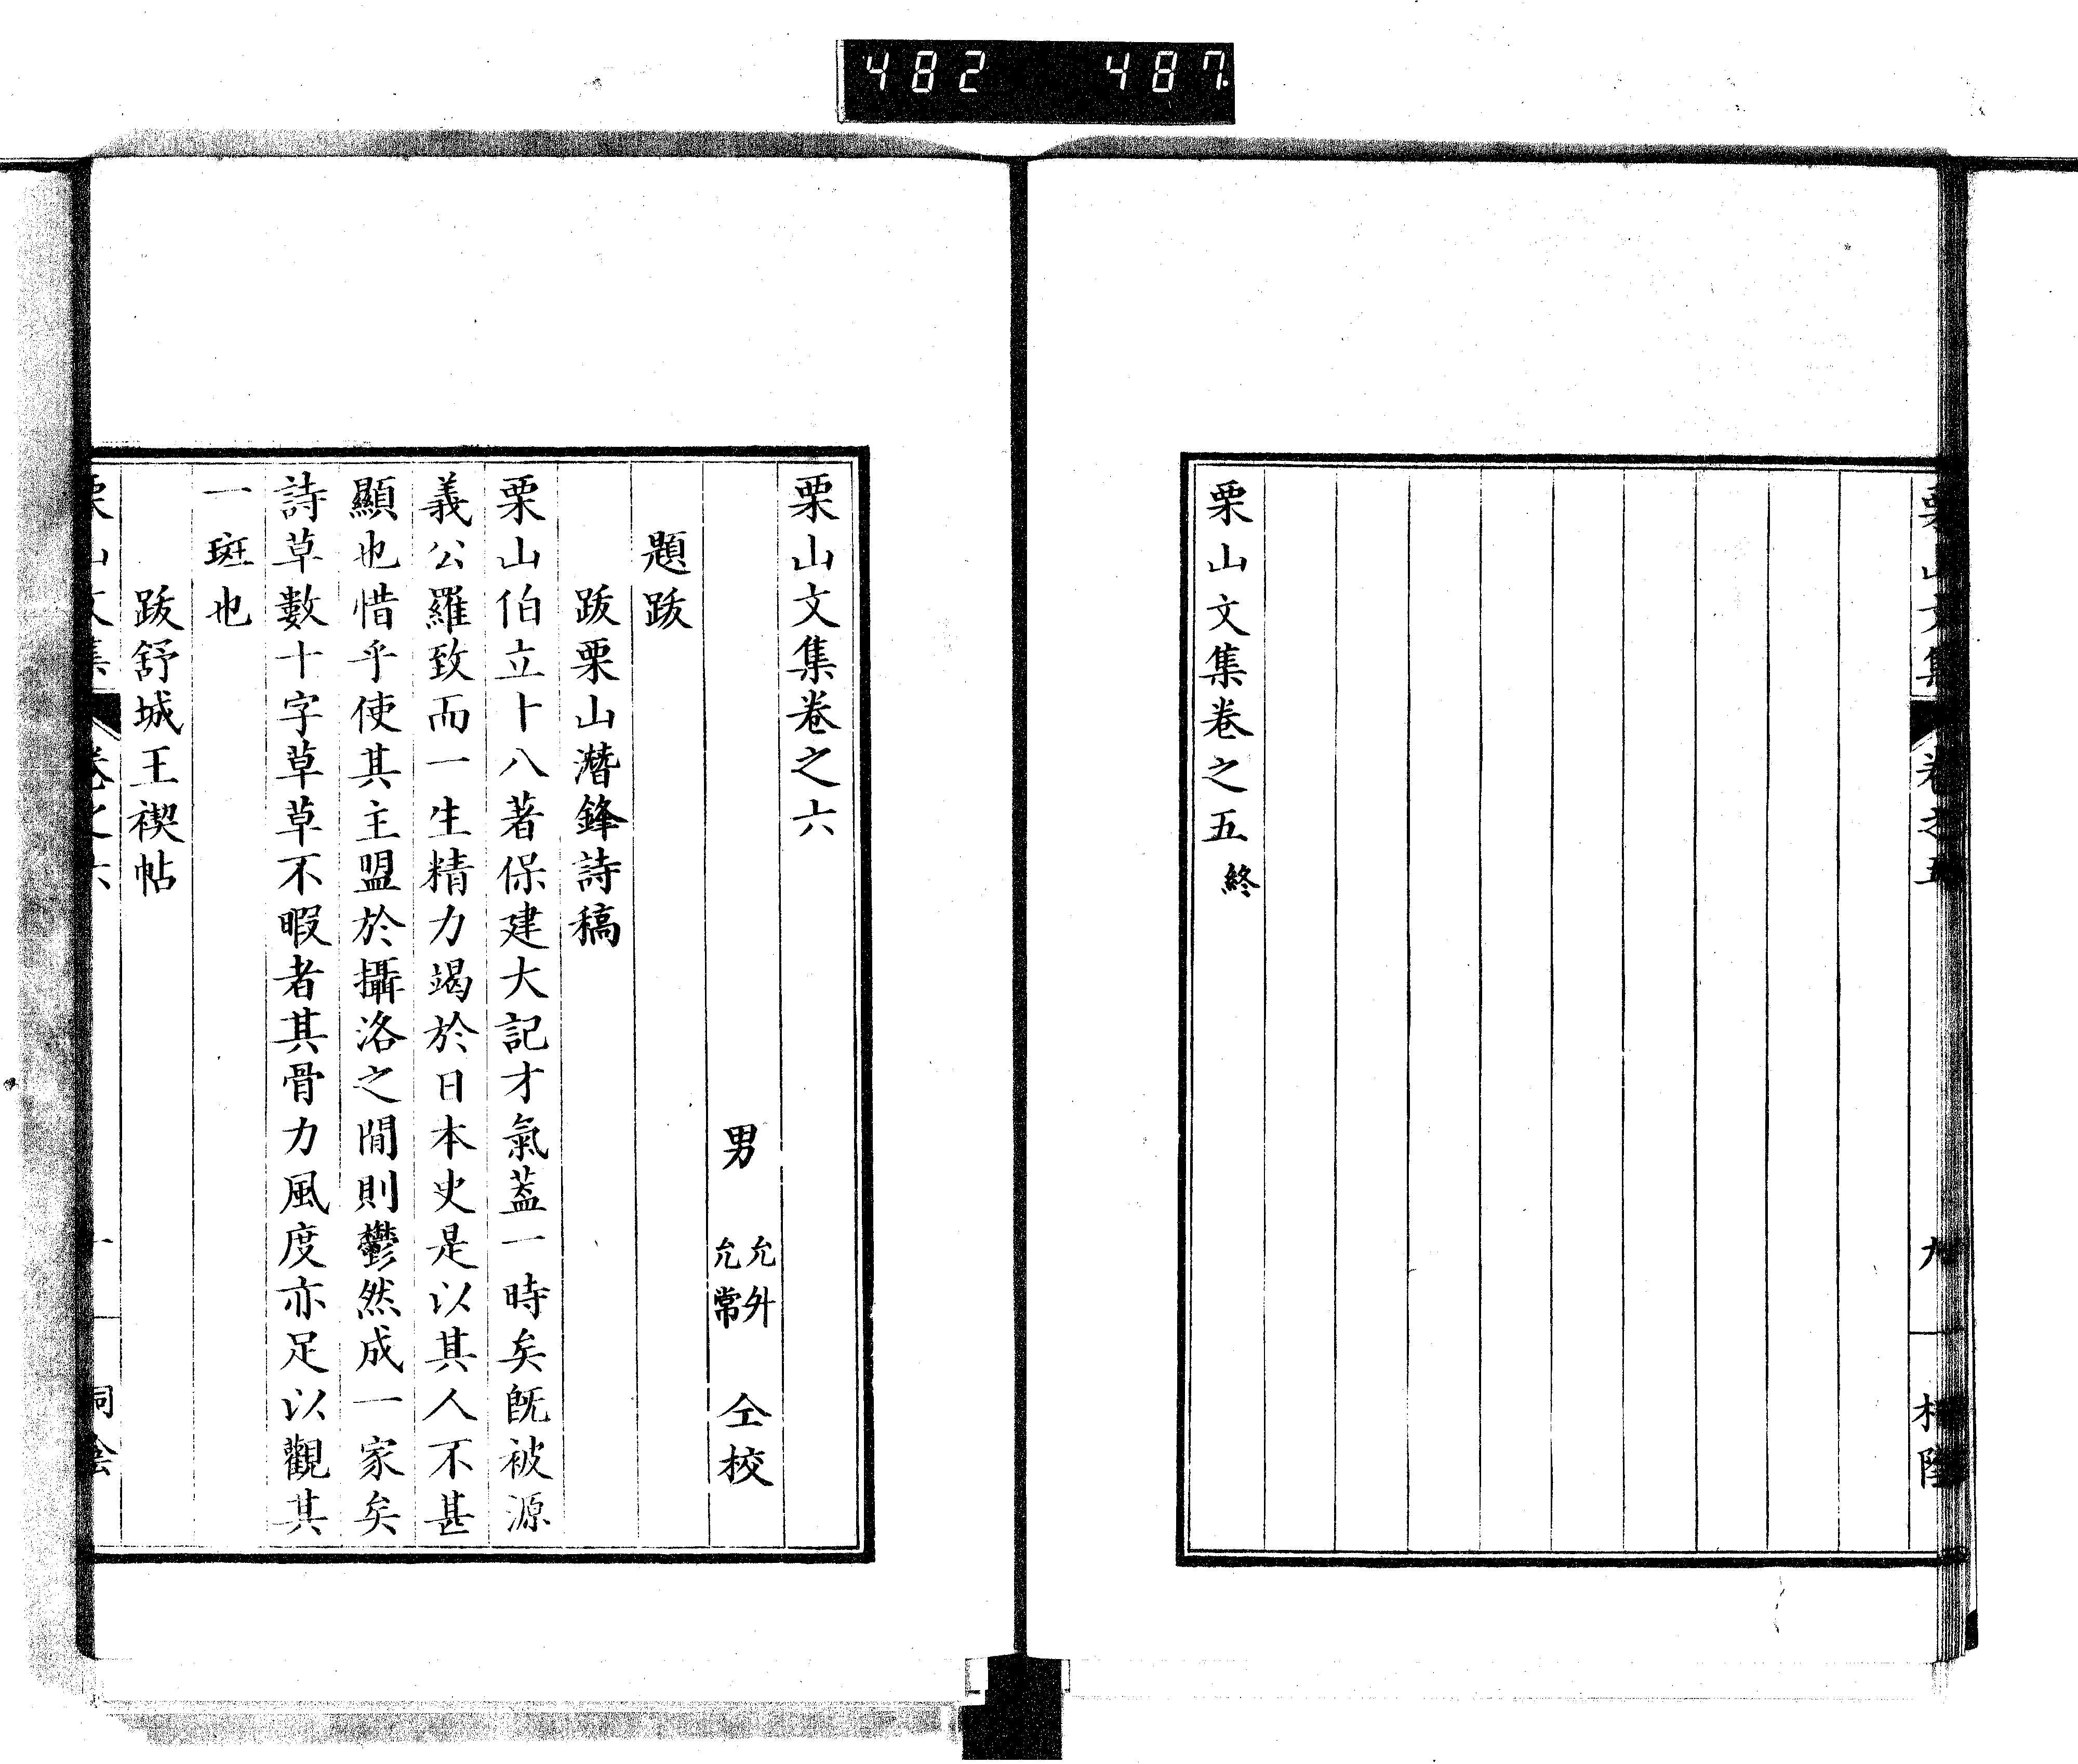 482 487
栗山文集卷之五
九
栗山文集卷之五 終
栗山文集卷之六
男 允外 允常 仝校
題跋
跋栗山潛鋒詩稿
栗山伯立十八著保建大記才氣蓋一時矣旣被源
義公羅致而一生精力竭於日本史是以其人不甚
顯也惜乎使其主盟於攝洛之間則鬱然成一家矣
詩草數十字草草不暇者其骨力風度亦足以觀其
一斑也
跋舒城王禊帖
栗山文集 卷之六
一